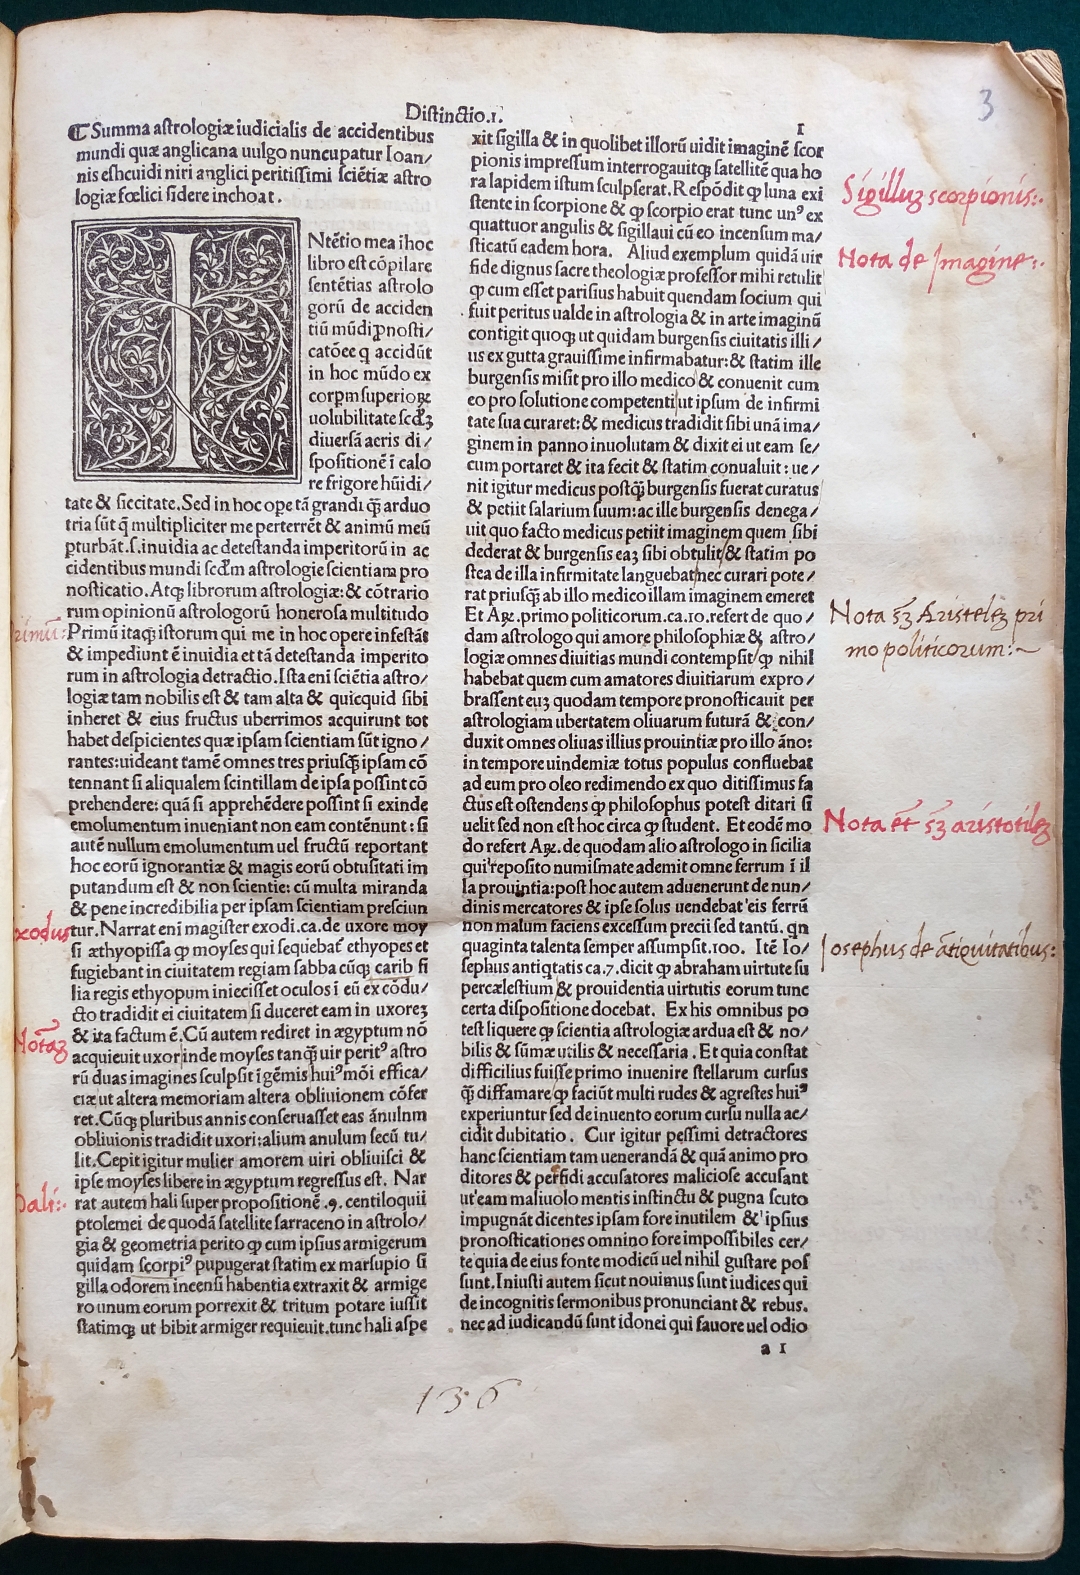 3
Distinctio.1.
1
¶ Summa astrologiæ iudicialis de accidentibus
mundi quæ anglicana uulgo nuncupatur Ioan/
nis eshcuidi niri anglici peritissimi sciẽtiæ astro
logiæ fœlici sidere inchoat.
I
Ntẽtio mea ĩ hoc
libro est cõpilare
sentẽtias astrolo
gorũ de acciden
tiũ mũdi ꝓnosti/
catõee q accidũt
in hoc mũdo ex
corpm superioꝝ
uolubilitate scd̃ꝫ
diuersã aeris di/
spositionẽ ĩ calo
re frigore hũidi/
tate & siccitate. Sed in hoc ope tã grandi q̃ꝫ arduo
tria sũt q̃ multipliciter me perterrẽt & animũ meũ
pturbãt.s. inuidia ac detestanda imperitorũ in ac
cidentibus mundi scd̃m astrologie scientiam pro
nosticatio. Atqꝫ librorum astrologiæ: & cõtrario
rum opinionũ astrologorũ honerosa multitudo
rimũ:
Primũ itaqꝫ istorum qui me in hoc opere infestãt
& impediunt ẽ inuidia et tã detestanda imperito
rum in astrologia detractio. Ista eni sciẽtia astro/
logiæ tam nobilis est & tam alta & quicquid sibi
inheret & eius fructus uberrimos acquirunt tot
habet despicientes quæ ipsam scientiam sũt igno/
rantes: uideant tamẽ omnes tres priusq̃ꝫ ipsam cõ
tennant si aliqualem scintillam de ipsa possint cõ
prehendere: quã si apprehẽdere possint si exinde
emolumentum inueniant non eam contẽnunt: si
autẽ nullum emolumentum uel fructũ reportant
hoc eorũ ignorantiæ & magis eorũ obtusitati im
putandum est & non scientie: cũ multa miranda
& pene incredibilia per ipsam scientiam presciun
xodus
tur. Narrat eni magister exodi.ca. de uxore moy
si æthyopissa qꝫ moyses qui sequebat̃ ethyopes et
fugiebant in ciuitatem regiam sabba cũqꝫ carib fi
lia regis ethyopum iniecisset oculos ĩ eũ ex cõdu/
cto tradidit ei ciuitatem si duceret eam in uxoreꝫ
Notãꝫ
& ita factum ẽ. Cũ autem rediret in ægyptum nõ
acquieuit uxor inde moyses tanq̃ꝫ uir peritꝰ astro
rũ duas imagines sculpsit ĩ gẽmis huiꝰ mõi effica/
ciæ ut altera memoriam altera obliuionem cõfer
ret. Cũqꝫ pluribus annis conseruasset eas ãnulnm
obliuionis tradidit uxori: alium anulum secũ tu/
lit. Cepit igitur mulier amorem uiri obliuisci &
ipse moyses libere in ægyptum regressus est. Nar
hali:
rat autem hali super propositionẽ .9. centiloquii
ptolemei de quodã satellite sarraceno in astrolo/
gia & geometria perito qꝫ cum ipsius armigerum
quidam scorpiꝰ pupugerat statim ex marsupio si
gilla odorem incensi habentia extraxit & armige
ro unum eorum porrexit & tritum potare iussit
statimqꝫ ut bibit armiger requieuit. tunc hali aspe
xit sigilla & in quolibet illorũ uidit imaginẽ scor
pionis impressum interrogauitqꝫ satellitẽ qua ho
ra lapidem istum sculpserat. Respõdit qꝫ luna exi
Sigilluꝫ scorpionis:.
stente in scorpione & qꝫ scorpio erat tunc unꝰ ex
quattuor angulis & sigillaui cũ eo incensum ma/
sticatũ eadem hora. Aliud exemplum quidã uir
Nota de Imagine:.
fide dignus sacre theologiæ professor mihi retulit
qꝫ cum esset parisius habuit quendam socium qui
fuit peritus ualde in astrologia & in arte imaginũ
contigit quoqꝫ ut quidam burgensis ciuitatis illi/
us ex gutta grauissime infirmabatur: & statim ille
burgensis misit pro illo medico & conuenit cum
eo pro solutione competenti ut ipsum de infirmi
tate sua curaret: & medicus tradidit sibi unã ima/
ginem in panno inuolutam & dixit ei ut eam se/
cum portaret & ita fecit & statim conualuit: ue/
nit igitur medicus postq̃ꝫ burgensis fuerat curatus
& petiit salarium suum: ac ille burgensis denega/
uit quo facto medicus petiit imaginem quem sibi
dederat & burgensis eaꝫ sibi obtulit & statim po
stea de illa infirmitate languebat nec curari pote/
rat priusq̃ꝫ ab illo medico illam imaginem emeret
Et Aꝝ. primo politicorum.ca.10. refert de quo/
Nota sꝫ Aristelẽꝫ pri
dam astrologo qui amore philosophiæ & astro/
mo politicorum:~
logiæ omnes diuitias mundi contempsit qꝫ nihil
habebat quem cum amatores diuitiarum expro/
brassent euꝫ quodam tempore pronosticauit per
astrologiam ubertatem oliuarum futurã & con/
duxit omnes oliuas illius prouintiæ pro illo ãno:
in tempore uindemiæ totus populus confluebat
ad eum pro oleo redimendo ex quo ditissimus fa
ctus est ostendens qꝫ philosophus potest ditari si
uelit sed non est hoc circa qꝫ student. Et eodẽ mo
Nota ẽt sꝫ aristotilẽꝫ
do refert Aꝝ. de quodam alio astrologo in sicilia
qui reposito numismate ademit omne ferrum ĩ il
la prouintia: post hoc autem aduenerunt de nun/
dinis mercatores & ipse solus uendebat eis ferrũ
non malum faciens excessum precii sed tantũ. qn
quaginta talenta semper assumpsit.100. Itẽ Io/
Iosephus de ãtiquitatibus:
sephus antiqtatis ca.7. dicit qꝫ abraham uirtute su
percælestium & prouidentia uirtutis eorum tunc
certa dispositione docebat. Ex his omnibus po
test liquere qꝫ scientia astrologiæ ardua est & no/
bilis & sũmæ utilis & necessaria. Et quia constat
difficilius fuisse primo inuenire stellarum cursus
q̃ꝫ diffamare qꝫ faciũt multi rudes & agrestes huiꝰ
experiuntur sed de inuento eorum cursu nulla ac/
cidit dubitatio. Cur igitur pessimi detractores
hanc scientiam tam uenerandã & quã animo pro
ditores & perfidi accusatores maliciose accusant
ut eam maliuolo mentis instinctu & pugna scuto
impugnãt dicentes ipsam fore inutilem & ipsius
pronosticationes omnino fore impossibiles cer/
te quia de eius fonte modicũ uel nihil gustare pos
sunt. Iniusti autem sicut nouimus sunt iudices qui
de incognitis sermonibus pronunciant & rebus.
nec ad iudicandũ sunt idonei qui fauore uel odio
a 1
136